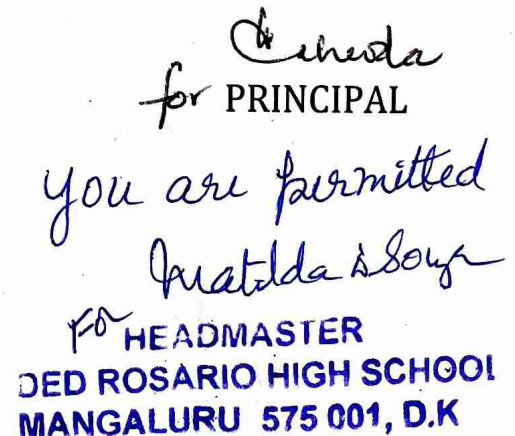 for PRINCIPAL
You are permitted
Matilda D'Souza
For HEADMASTER
DED ROSARIO HIGH SCHOOL
MANGALURU 575 001, D.K